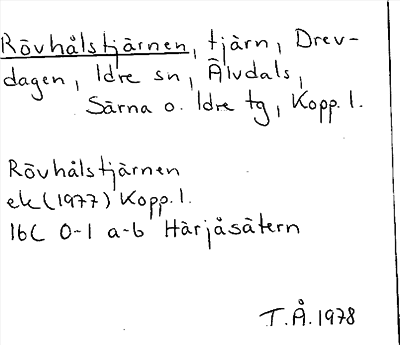 Rövhålstjärnen, tjärn, Drev-
dagen, Idre sn, Älvdals,
Särna o. Idre tg, Kopp. l.
Rövhålstjärnen
ek (1977) Kopp. l.
16C 0-1 a-b Härjåsätern
T.Å. 1978